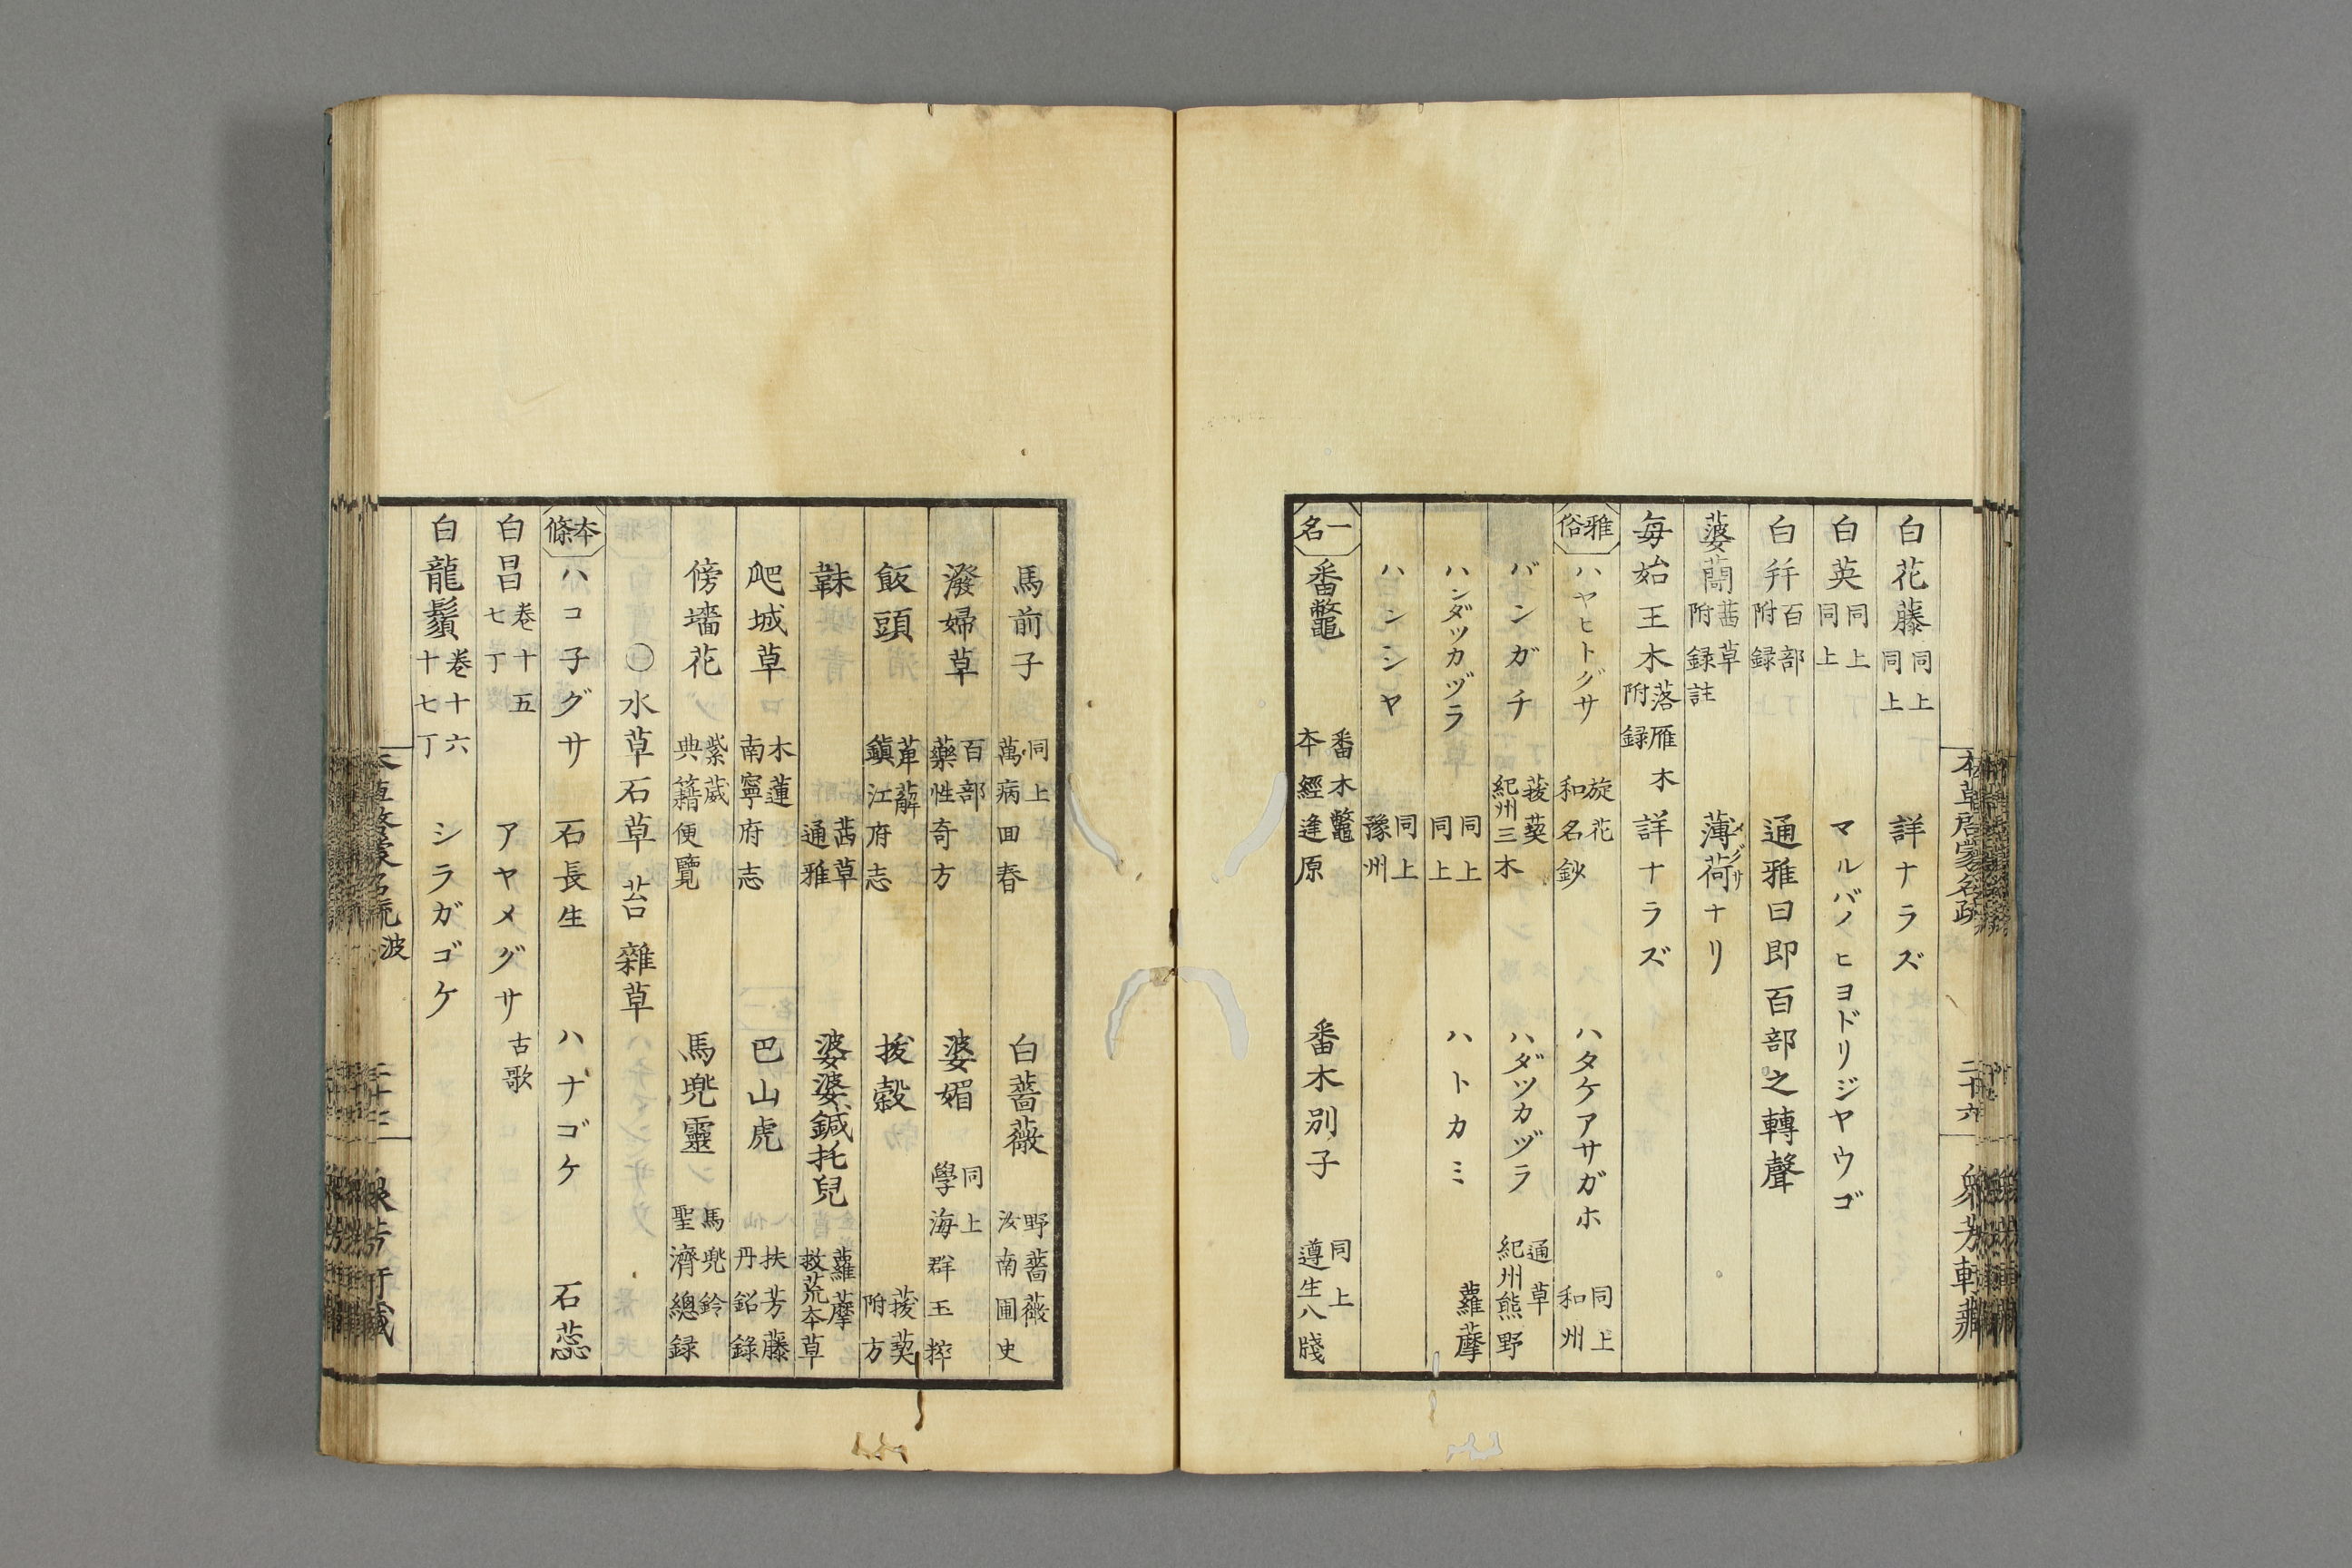 白花藤 同上同上 詳ナラズ
白英 同上同上 マルバノヒヨドリジヤウゴ
白幵 百部附録 通雅曰即百部之轉聲
婆蕳 茜草附録註 薄荷メグサナリ
毎始王木 落雁木附録 詳ナラズ
雅俗 ハヤヒトグサ 旋花和名鈔 ハタケアサガホ 同上和州
バンガチ 菝葜紀州三木 ハダツカヅラ 通草紀州熊野
ハンダツカヅラ 同上同上 ハトカミ 蘿藦
ハンシヤ 同上豫州
一名 番鼈 番木鼈本經逢原 番木別子 同上遵生八牋
馬前子 同上萬病回春 白薔薇 野薔薇汝南圃史
潑婦草 百部藥性奇方 婆媚 同上學海群玉
飯頭 萆薢鎮江府志 拔穀 菝葜附方
韎 茜草通雅 婆婆鍼托兒 蘿藦救荒本草
爬城草 木蓮南寧府志 巴山虎 扶芳藤丹鉛錄
傍墻花 紫葳典籍便覽 馬兜靈 馬兜鈴聖濟總録
〇水草石草 苔 雜草
本條 ハコ子グサ 石長生 ハナゴケ 石蕊
白昌 卷十五七丁 アヤメグサ 古歌
白龍鬚 卷十六十七丁 シラガゴケ
波